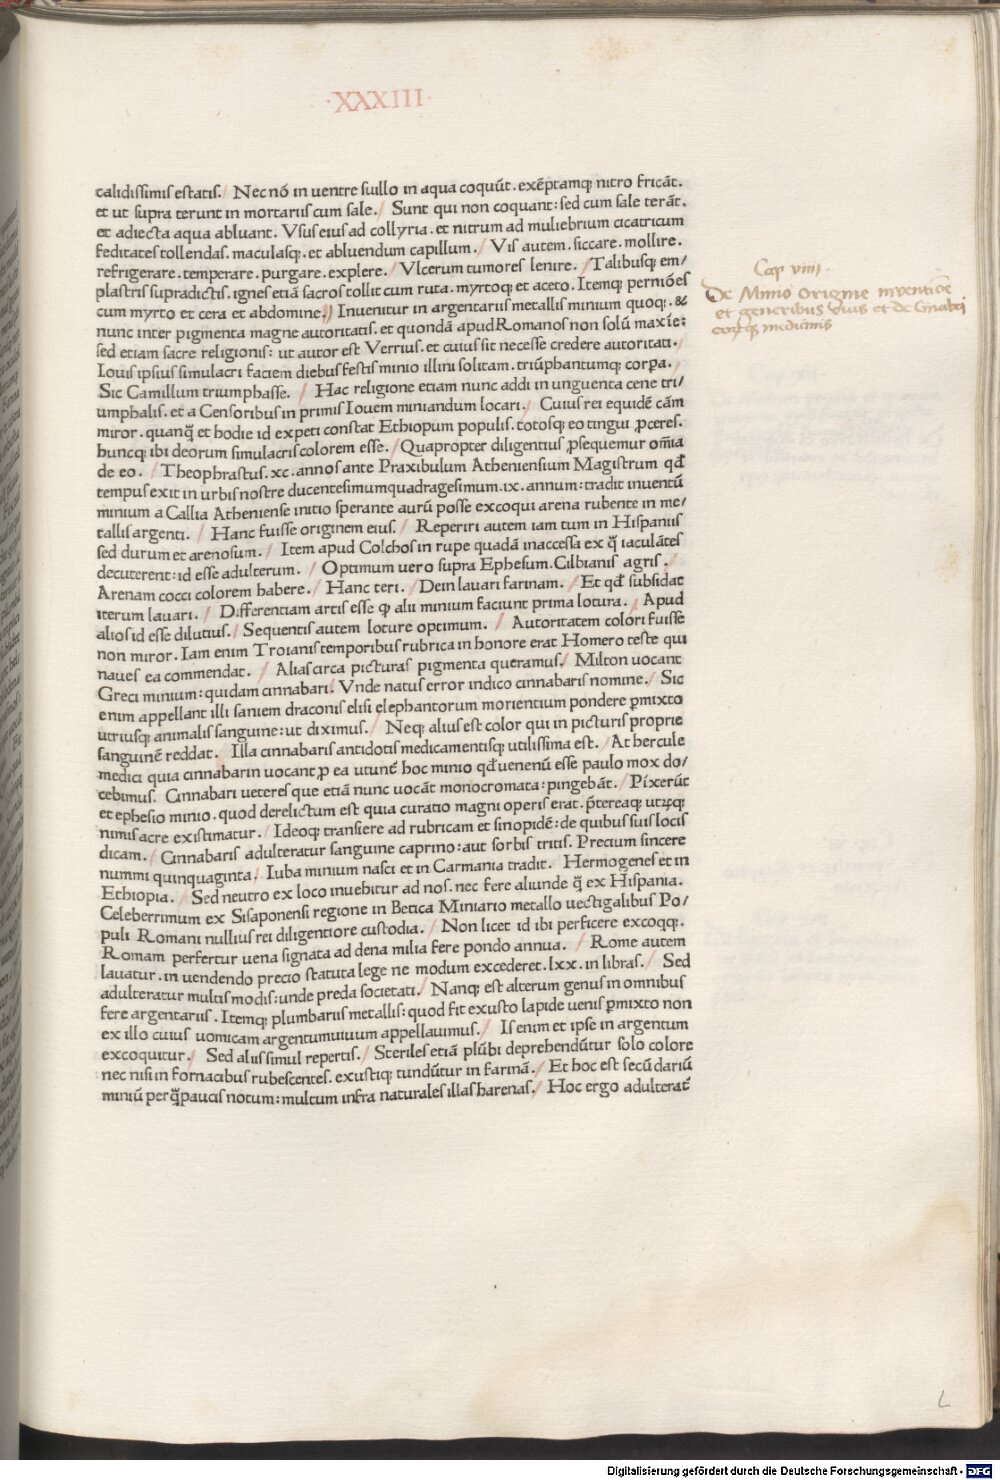 ·XXXIII·
calidissimis estatis. Nec nō in uentre suillo in aqua coquūt. exēptamq; nitro fricāt.
et ut supra terunt in mortariis cum sale. Sunt qui non coquant: sed cum sale terāt.
et adiecta aqua abluant. Vsus eius ad collyria. et nitrum ad muliebrium cicatricum
feditates tollendas. maculasq;. et abluendum capillum. Vis autem. siccare. mollire.
refrigerare. temperare. purgare. explere. Vlcerum tumores lenire. Talibusq; em/
plastris supradictis. ignes etiā sacros tollit cum ruta. myrtoq; et aceto. Itemq; perniōes
cum myrto et cera et abdomine. Inuenitur in argentariis metallis minium quoq;. &
nunc inter pigmenta magne autoritatis. et quondā apud Romanos non solū maxīe:
sed etiam sacre religionis: ut autor est Verrius. et cuius sit necesse credere autoritati.
Iouis ipsius simulacri faciem diebus festis minio illini solitam. triūphantumq; corꝑa.
Sic Camillum triumphasse. Hac religione etiam nunc addi in unguenta cene tri/
umphalis. et a Censoribus in primis Iouem miniandum locari. Cuius rei equidē cām
miror. quanq̃ et hodie id expeti constat Ethiopum populis. totosq; eo tingui ꝓceres.
huncq; ibi deorum simulacris colorem esse. Quapropter diligentius ꝓsequemur om̄ia
de eo. Theophrastus. xc. annos ante Praxibulum Atheniensium Magistrum qđ
tempus exit in urbis nostre ducentesimumquadragesimum. ix. annum: tradit inuentū
minium a Callia Atheniense initio sperante aurū posse excoqui arena rubente in me/
tallis argenti. Hanc fuisse originem eius. Reperiri autem iam tum in Hispaniis
sed durum et arenosum. Item apud Colchos in rupe quadā inaccessa ex q̃ iaculātes
decuterent: id esse adulterum. Optimum uero supra Ephesum. Cilbianis agris.
Arenam cocci colorem habere. Hanc teri. Dein lauari farinam. Et qđ subsidat
iterum lauari. Differentiam artis esse ꝙ alii minium faciunt prima lotura. Apud
alios id esse dilutius. Sequentis autem loture optimum. Autoritatem colori fuisse
non miror. Iam enim Troianis temporibus rubrica in honore erat Homero teste qui
naues ea commendat. Alias circa picturas pigmenta queramus. Milton uocant
Greci minium: quidam cinnabari. Vnde natus error indico cinnabaris nomine. Sic
enim appellant illi saniem draconis elisi elephantorum morientium pondere ꝑmixto
utriusq; animalis sanguine: ut diximus. Neq; alius est color qui in picturis proprie
sanguinē reddat. Illa cinnabaris antidotis medicamentisq; utilissima est. At hercule
medici quia cinnabarin uocant, ꝓ ea utunt̄ hoc minio qđ uenenū esse paulo mox do/
cebimus. Cinnabari ueteres que etiā nunc uocāt monocromata: pingebāt. Pixerūt
et ephesio minio. quod derelictum est quia curatio magni operis erat. p̄tereaq; utrūq;
nimis acre existimatur. Ideoq; transiere ad rubricam et sinopidē: de quibus suis locis
dicam. Cinnabaris adulteratur sanguine caprino: aut sorbis tritis. Precium sincere
nummi quinquaginta. Iuba minium nasci et in Carmania tradit. Hermogenes et in
Ethiopia. Sed neutro ex loco inuehitur ad nos. nec fere aliunde q̃ ex Hispania.
Celeberrimum ex Sisaponensi regione in Betica Miniario metallo uectigalibus Po/
puli Romani nullius rei diligentiore custodia. Non licet id ibi perficere excoqq;.
Romam perfertur uena signata ad dena milia fere pondo annua. Rome autem
lauatur. in uendendo precio statuta lege ne modum excederet. lxx. in libras. Sed
adulteratur multis modis: unde preda societati. Nanq; est alterum genus in omnibus
fere argentariis. Itemq; plumbariis metallis: quod fit exusto lapide uenis ꝑmixto non
ex illo cuius uomicam argentumuiuum appellauimus. Is enim et ipse in argentum
excoquitur. Sed aliis simul repertis. Steriles etiā plūbi deprehendūtur solo colore
nec nisi in fornacibus rubescentes. exustiq; tundūtur in farinā. Et hoc est secūdariū
miniū per q̃paucis notum: multum infra naturales illas harenas. Hoc ergo adulterat̄
Cap viiii.
De Minio origine inventiōe
et generibus eius et de Cinabri
eorumq; medicinis
L
Digitalisierung gefördert durch die Deutsche Forschungsgemeinschaft - DFG